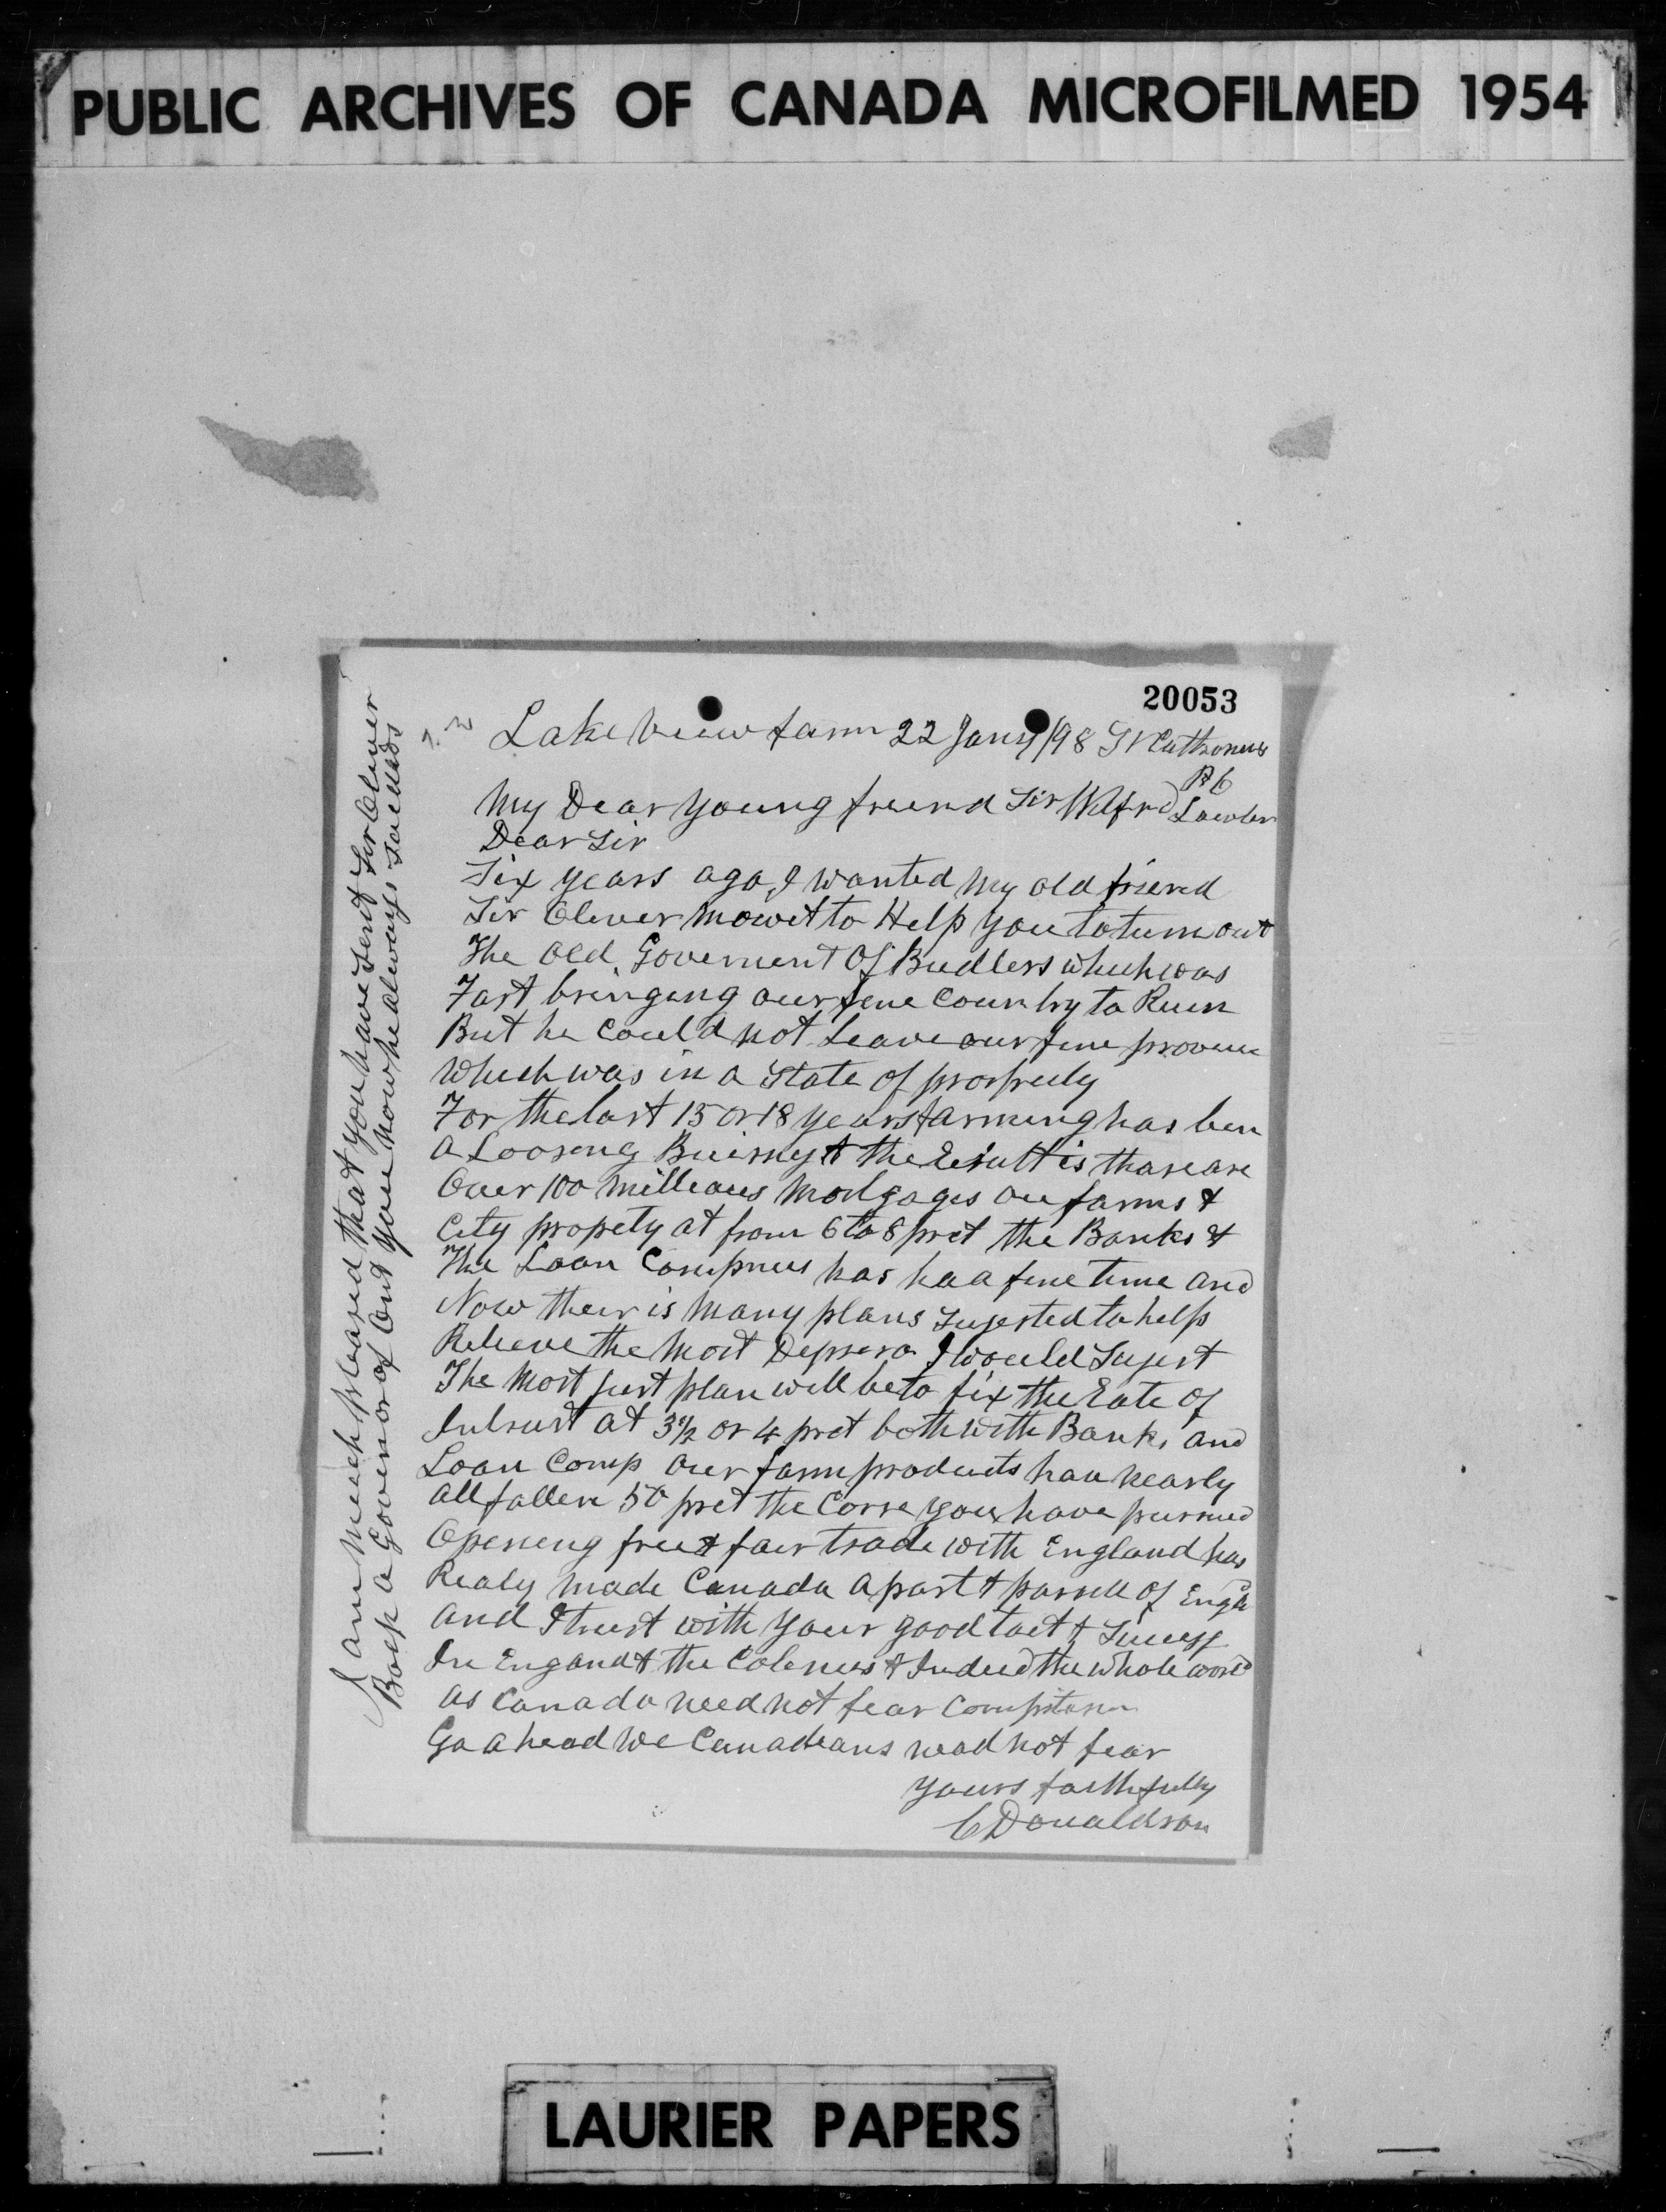 PUBLIC ARCHIVES OF CANADA MICROFILMED 1954
20053
Lake View farm 22 Jany /98 St Cathrones
My Dear young friend Sir Wilfrd Lawler
Dear Sir
Six years ago, I wanted my old friend
Sir Olever Mowet to Help you to turn out
The old Goverment Of Budlers which was
Fast bringing our fine Country to Ruen
But he could not leave our fine provence
Which was in a State of prosprety
For the last 15 or 18 years farming has ben
a Loosing Buisnys & the Result is thare are
Over 100 millions Morlgages on farms &
City propety at from 6 to 8 prct the Banks &
The Loan Compnies has had a fine time and
Now their is Many plans Sugested to help
Releave the Most I would Sugest
The Most just plan will be to fix the Rate of
Intrust at 3½ or 4 prct both with Banks and
Loan Comp our farm products hav nearly
all fallen 50 prct the Corse you have pursued
Opening free & fair trade with England has
Realy made Canada a part & parsell of Engld
and I trust with your good tact & Sucess
In Engand & the Colenies & Indeed the whole world
as Canada need not fear Compitison
Go a head We Canadians nead not fear
yours faithfully
C Donaldson
I am much pleased that you have sent Sir Oliver
Back a Govenor of Ont you know he always
LAURIER PAPERS